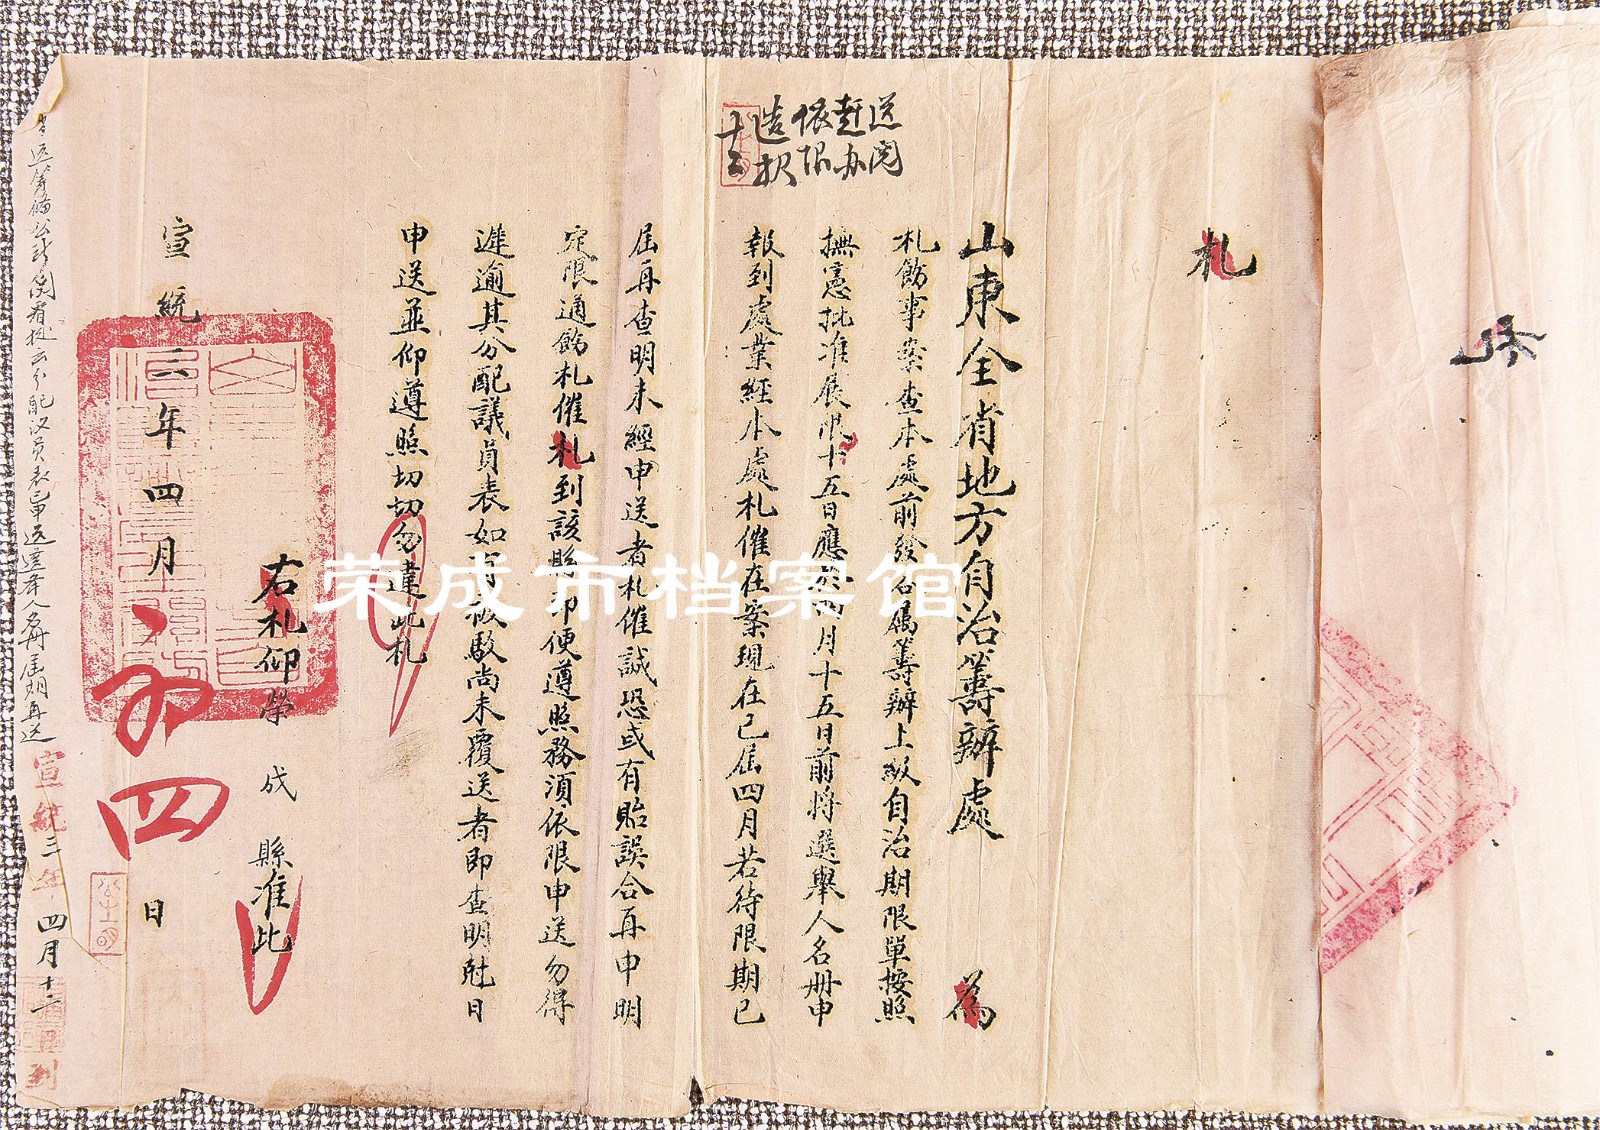 札
山東全省地方自治籌辦處 為
札飭事案查本處前發各屬籌辦上級自治期限單按照
撫憲批准展限十五日應於四月十五日前將選舉人名册申
報到處業經本處札催在案現在已屆四月若待限期已
屆再查明未經申送者札催誠恐或有貽誤合再申明
定限通飭札催札到該縣即便遵照務須依限申送勿得
遲逾其分配議員表如有被駁尚未覆送者即查明尅日
申送並仰遵照切切勿違此札
右札仰榮成縣准此
宣統三年四月初四日
送閱
趕办
依限
造报
十二
宣統三年四月十二日到
荣成市档案馆